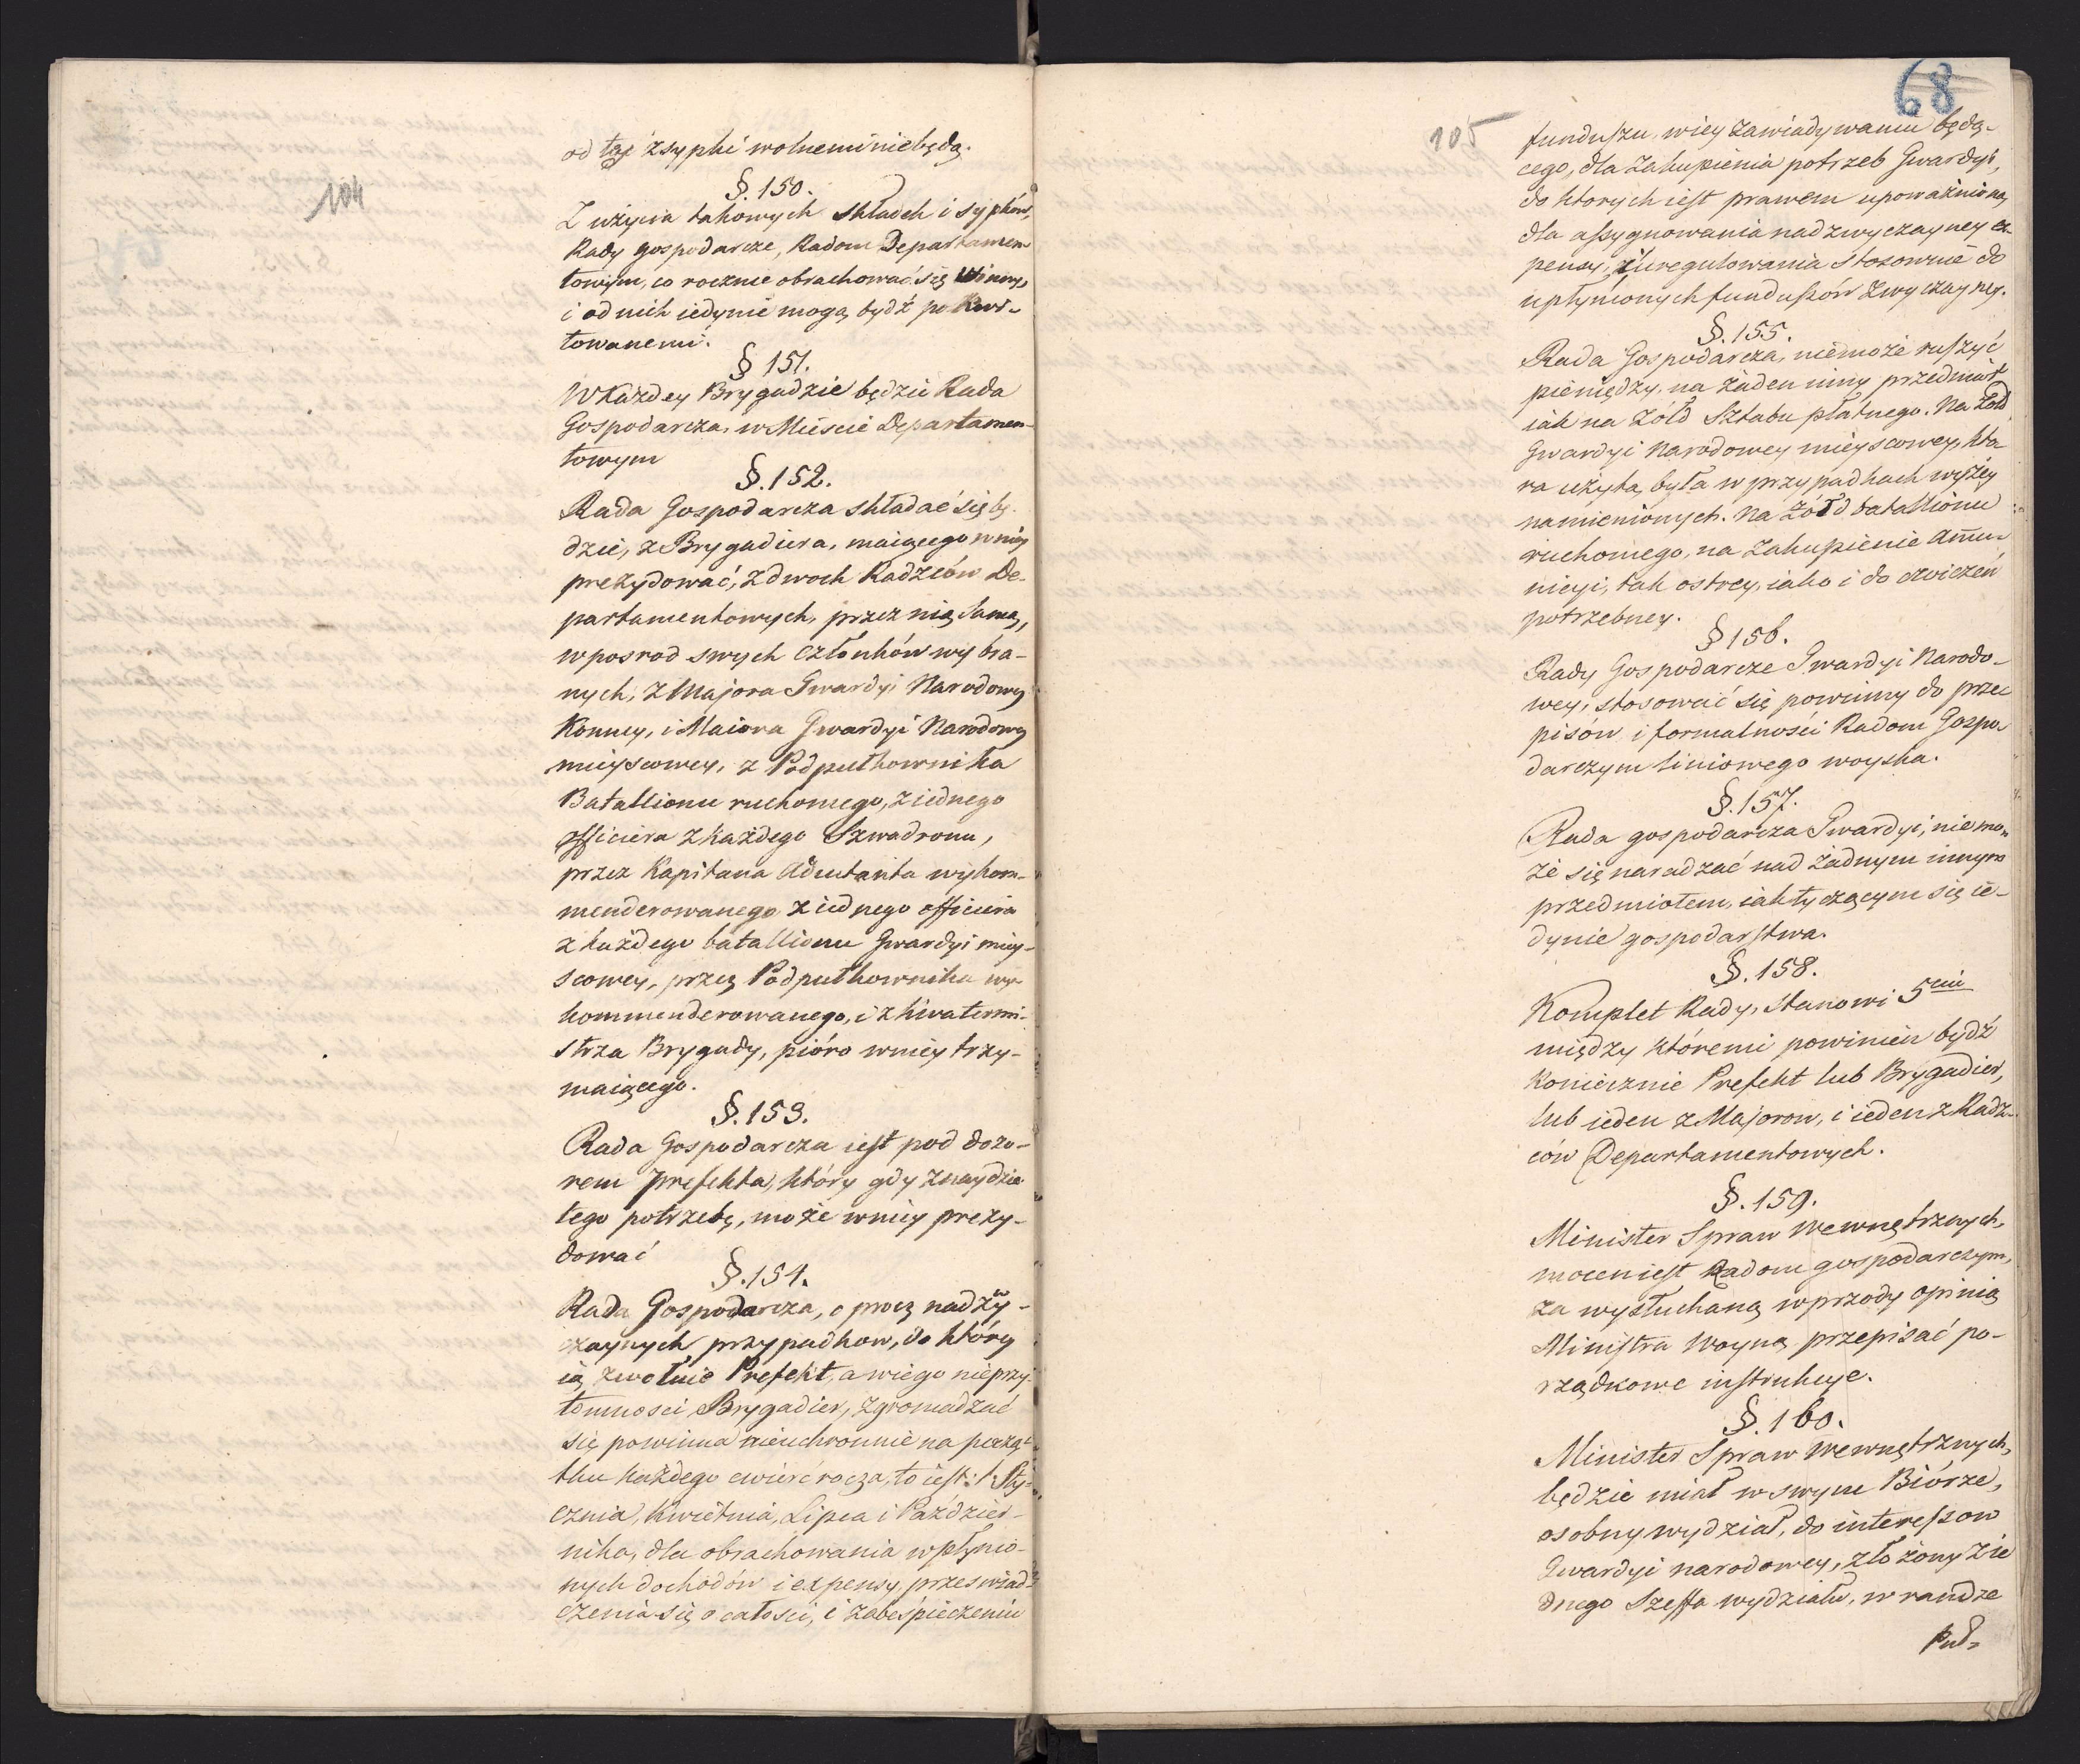 104
od tej zsypki wolnemi nie będą.
§. 150.
Z użycia takowych składek i sypków,
Rady gospodarcze, Radom Departamen
towym, co rocznie obrachować się winny,
i od nich iedynie mogą bydź po kwi-
towanemi.
§ 151.
W Każdey Brygadzie będzie Rada
Gospodarcza, w Mieście Departamen-
towym
§. 152.
Rada Gospodarcza składać się bę-
dzie, z Brygadiera, maiącego w niey
prezydować, z dwoch Radzców De-
partamentowych, przez nią samą,
w posrod swych Członków wybra-
nych, z Majora Gwardyi Narodowey
Konney, i Maiora Gwardyi Narodowey
mieyscowey, z Podpułkownika
Batallionu ruchomego, z iednego
officiera z każdego Szwadronu,
przez Kapitana Adiutanta wykom-
menderowanego z iednego officiera
z każdego batallionu Gwardyi miey-
scowey, przez Podpułkownika wy-
kommenderowanego, i z kwatermi-
strza Brygady, pióro w niey trzy-
maiącego.
§. 153.
Rada Gospodarcza iest pod dozo-
rem Prefekta, który gdy znaydzie
tego potrzebę, może w niey prezy-
dować
§. 154.
Rada Gospodarcza, o procz nadzwy-
czaynych przypadkow, do który
ią zwołuie Prefekt, a w iego nieprzy-
tomnosci Brygadier, zgromadzać
się powinna nieuchronnie na począt-
tku każdego cwierć rocza, to iest: 1. Sty-
cznia, Kwietnia, Lipca i Paździer-
nika, dla obrachowania wpłynio-
nych dochodów i expensy, przeswiad-
czenia się o całosci, i zabespieczeniu
68
105
funduszu, w iey zawiadywaniu będą-
cego, dla zakupienia potrzeb Gwardyi,
do ktorych iest prawem upoważniona,
dla assygnowania nadzwyczayney ex-
pensy, z uregulowania stosownie do
upłynionych funduszów zwyczayney.
§. 155.
Rada Gospodarcza, niemoże ruszyć
pieniędzy, na żaden inny przedmiot
iak na Żołd Sztabu płatnego. Na Żołd
Gwardyi Narodowey mieyscowey, któ
ra użyta, była w przypadkach wyżey
namienionych. Na Żołd batallionu
ruchomego, na zakupienie Amu-
nicyi, tak ostrey, iako i do cwiczeń
potrzebney.
§ 156.
Rady Gospodarcze Gwardyi Narodo-
wey, stosować się powinny do prze-
pisów i formalności Radom Gospo-
darczym liniowego woyska.
§. 157.
Rada gospodarcza Gwardyi, nie mo-
że się naradzać nad żadnym innym
przedmiotem, iak tyczącym się ie-
dynie gospodarstwa.
§. 158.
Komplet Rady, stanowi 5ciu
między któremi powinien bydź
koniecznie Prefekt lub Brygadier,
lub ieden z Majorow, i ieden z Radz-
ców Departamentowych.
§. 159.
Minister Spraw Wewnętrznych,
mocen iest Radom gospodarczym,
za wysłuchaną wprzody opinią
Ministra Woyny przepisać po-
rządkowe instrukcye.
§. 160.
Minister Spraw Wewnętrznych,
będzie miał w swym Biórze,
osobny wydział, do interessow
Gwardyi narodowey, złożony z ie
dnego Szeffa wydziału, w randze
Puł-